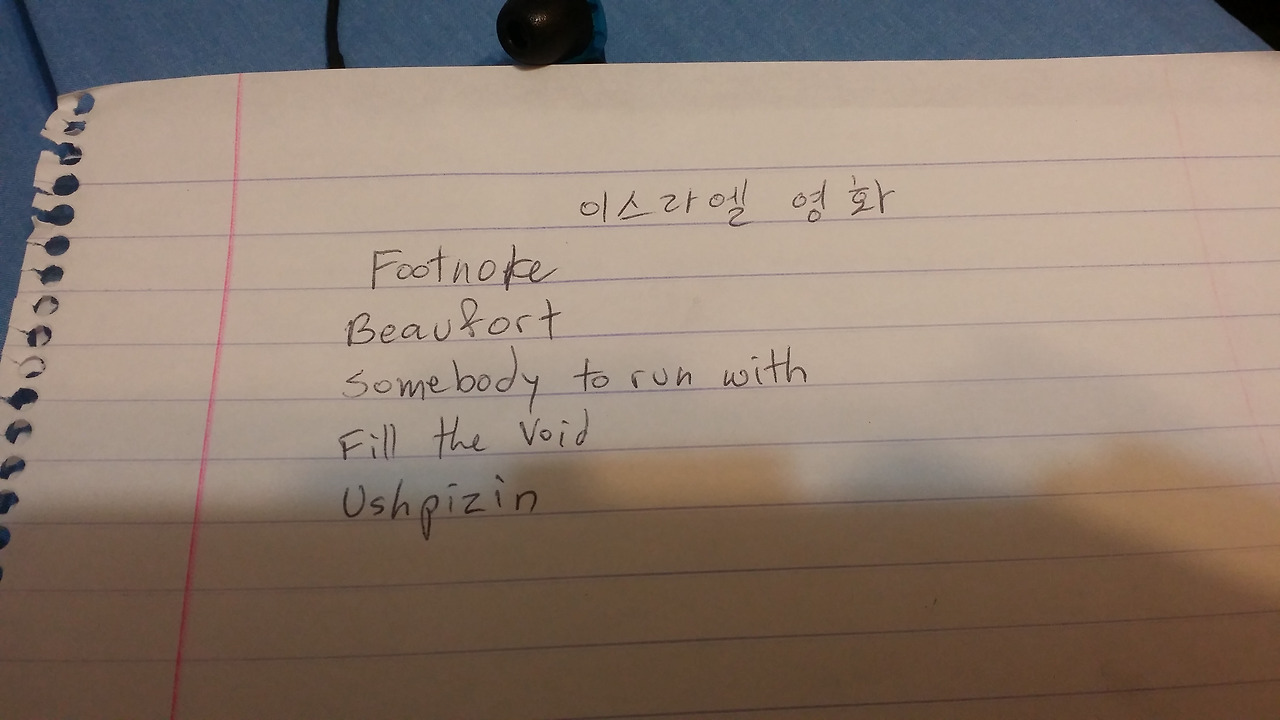 이스라엘 영화
Footnote
Beaufort
Somebody to run with
Fill the Void
Ushpizin